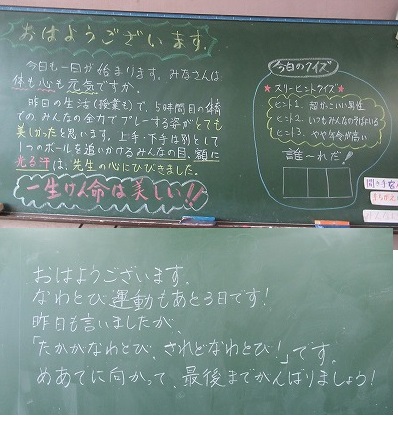 おはようございます。
今日も一日が始まります。みなさんは、
体も心も元気ですか。
昨日の生活(授業も)で、5時間目の体育
での、みんなの全力でプレーする姿がとても
美しかったと思います。上手・下手は別として
1つのボールを追いかけるみんなの目、額に
光る汗は、先生の心にひびきました。
一生けん命は美しい!!
今日のクイズ
★スリーヒントクイズ★
ヒント1、超かっこいい男性
ヒント2、いつもみんなのそばにいる
ヒント3、やや年令が高い
誰~れだ!
おはようございます。
なわとび運動もあと3日です!
昨日も言いましたが、
「たかがなわとび、されどなわとび!」です。
めあてに向かって、最後までがんばりましょう!